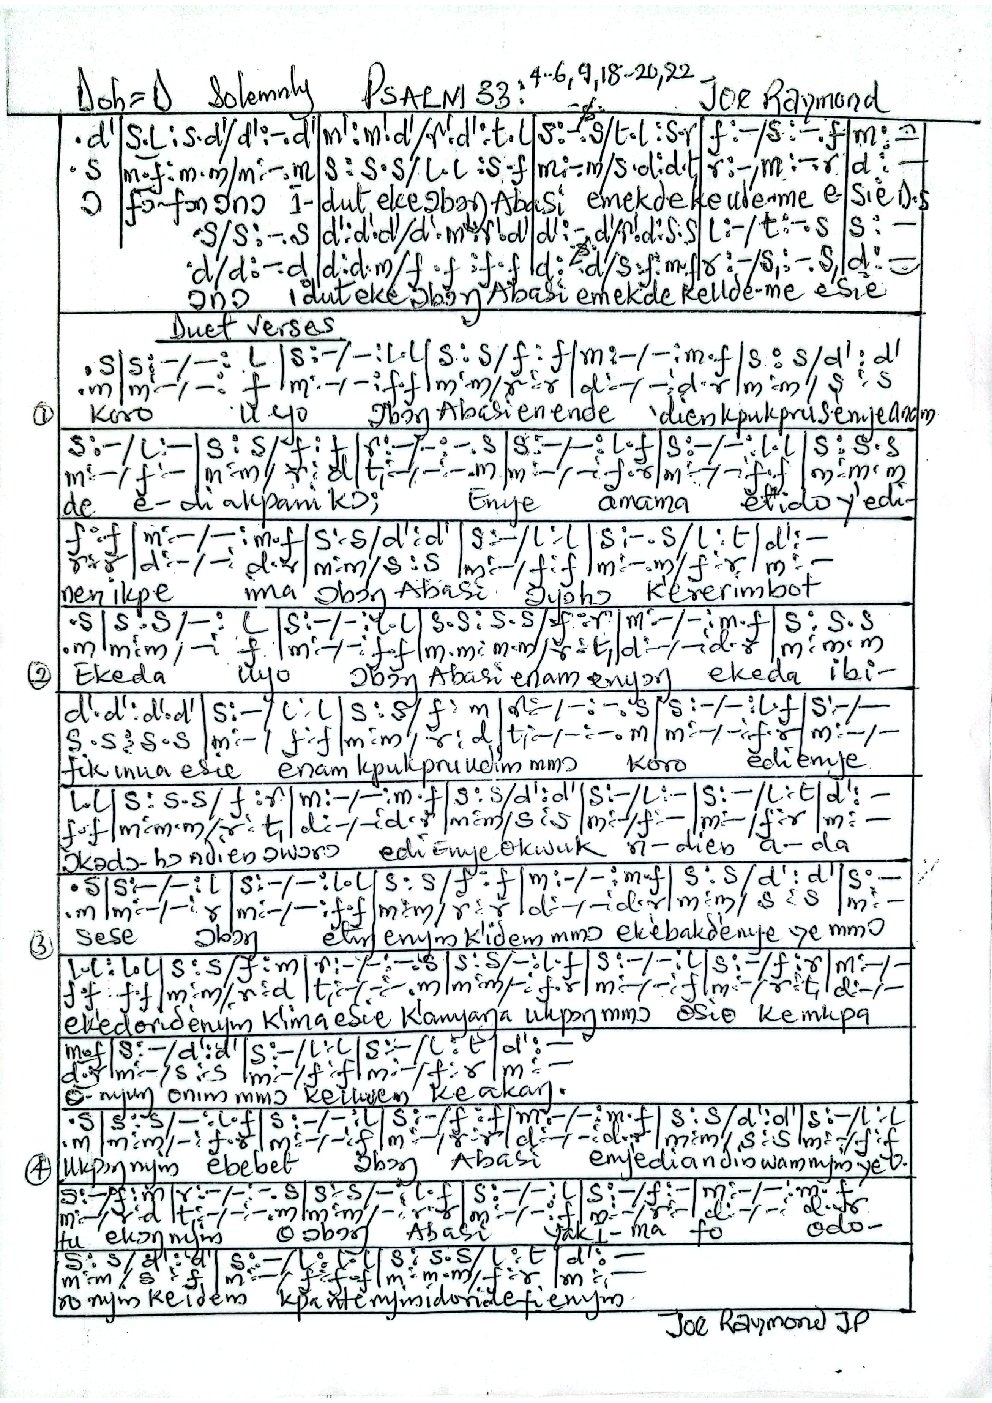 Doh=D Solemnly PSALM 33:4-6,9,18-20,22 JOE Raymond
.d'|S.L:S.d'/d':-.d'|m':m'.d'/r'.d':t.l|S:-.S/t.l:S.r|f:-/S:-.f|m:-
.S|m.f:m.m/m:-.m|S:S.S/L.L:S.f|m:-.m/S.d:d.t|r:-/m:-.r|d:-
Ɔ fɔ-fɔŋ ɔŋɔ I-dut eke Ɔbɔŋ Abasi emekde keufɔn-me e-Sie D.S
.S/S:-.S|d':d'.d'/d'.m':r'.d'|d':-.d'/r'.d':S.S|L:-/t:-.S|S:-
.d/d:-.d|d:d.m/f.f:f.f|d:-.d/S.f:m.f|r:-/S,:-.S,|d:-
ɔŋɔ idut eke Ɔbɔŋ Abasi emekde esie
Duet verses
.S|S:-/-:L|S:-/-:L.L|S:S/f:f|m:-/-:m.f|S:S/d':d'
.m|m:-/-:f|m:-/-:f.f|m:m/r:r|d:-/-:d.r|m:m/S:S
① Koro Uyo Ɔbɔŋ Abasi enende
S:-/L:-|S:S/f:f|r:-/-:-.S|S:-/-:L.f|S:-/-:L.L|S:S.S
m:-/f:-|m:m/r:d|t,:-/-:-.m|m:-/-:f.r|m:-/-:f.f|m:m.m
de e-di akpanikɔ; Enye amama etido y'edi-
f:f|m:-/-:m.f|S:S/d':d'|S:-/L:L|S:-.S/L:t|d':-
r:r|d:-/-:d.r|m:m/S:S|m:-/f:f|m:-.m/f:r|m:-
nen ikpe ima Ɔbɔŋ Abasi ɔyɔhɔ Kererimbot
.S|S:S/-:L|S:-/-:L.L|S.S:S.S/f:r|m:-/-:m.f|S:S.S
.m|m:m/-:f|m:-/-:f.f|m.m:m.m/r:t,|d:-/-:d.r|m:m.m
② Ekeda uyo Ɔbɔŋ Abasi enam enyɔŋ ekeda ibi-
d'.d':d'.d'|S:-/L:L|S:S/f:m|r:-/-:-.S|S:-/-:L.f|S:-/-
S.S:S.S|m:-/f:f|m:m/r:d|t,:-/-:-.m|m:-/-:f.r|m:-/-
fik inua esie enam kpukpru udim mmɔ Koro edi enye
L.L|S:S.S/f:r|m:-/-:m.f|S:S/d':d'|S:-/L:-|S:-/L:t|d':-
f.f|m:m.m/r:t,|d:-/-:d.r|m:m/S:S|m:-/f:-|m:-/f:r|m:-
ɔkɔdɔ-hɔ ndien ɔwɔrɔ edi Enye Okwuk n-dien a-da
.S|S:-/-:L|S:-/-:L.L|S:S/f:f|m:-/-:m.f|S:S/d':d'|S:-
.m|m:-/-:r|m:-/-:f.f|m:m/r:r|d:-/-:d.r|m:m/S:S|m:-
③ Sese Ɔbɔŋ etiŋ enyin K'idem mmɔ ekebakde enye ye mmɔ
L.L:L.L|S:S/f:m|r:-/-:-.S|S:S/-:L.f|S:-/-:L|S:-/f:r|m:-/-
f.f:f.f|m:m/r:d|t,:-/-:-.m|m:m/-:f.r|m:-/-:f|m:-/r:t,|d:-/-
ekedoridenyin Kima esie Kanyaŋa ukpɔŋ mmɔ osio Kemkpa
m.f|S:-/d':d'|S:-/L:L|S:-/L:t|d':-
d.r|m:-/S:S|m:-/f:f|m:-/f:r|m:-
o-nyuŋ onim mmɔ keuwem ke akaŋ.
.S|S:S/-:L.f|S:-/-:L|S:-/f:f|m:-/-:m.f|S:S/d':d'|S:-/L:L
.m|m:m/-:f.r|m:-/-:f|m:-/r:r|d:-/-:d.r|m:m/S:S|m:-/f:f
④ Ukpɔŋ nyin ebebet Ɔbɔŋ Abasi enyedi andiŋwam nyin
S:-/f:m|r:-/-:-.S|S:S/-:L.f|S:-/-:L|S:-/f:-|m:-/-:m.f
m:-/r:d|t,:-/-:-.m|m:m/-:f.r|m:-/-:f|m:-/r:-|d:-/-:d.r
tu ekɔŋ nyin O Ɔbɔŋ Abasi yak I-ma fo odo-
S:S/d':d'|S:-/L:L.L|S:S.S/L:t|d':-
m:m/S:f|m:-/f:f.f|m:m.m/f:r|m:-
ro nyin keidem kpante nyin idoride fi enyin
Joe Raymond JP